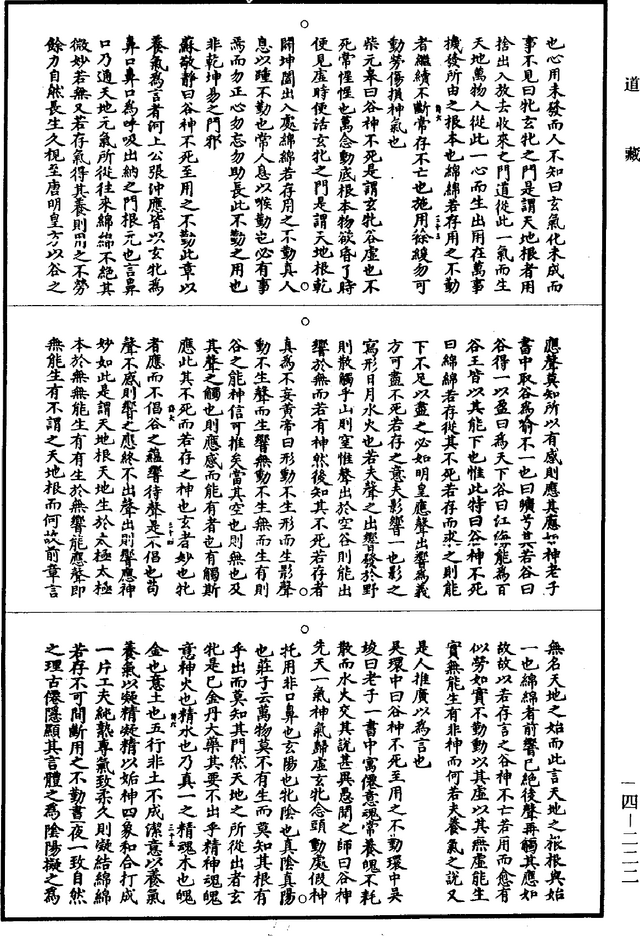 道藏
也心用未發而人不知曰玄氣化未成而
事不見曰牝玄牝之門是謂天地根者用
捨出入放去收來之門道從此一氣而生
天地萬物人從此一心而生出用在萬事
機發所由之根本也綿綿若存用之不勤
者繼續不斷常存不亡也施用徐緩勿可
動勞傷損神氣也
柴元皋曰谷神不死是謂玄牝谷虛也不
死常惺惺也萬念動處根本物欲昏了時
便見虛時便活玄牝之門是謂天地根乾
闢坤闔出入處綿綿若存用之不勤真人
息以踵不勤也常人息以喉勤也必有事
焉而勿正心勿忘勿助長此不勤之用也
非乾坤易之門邪
蘇敬靜曰谷神不死至用之不勤此章以
養氣為言者河上公張沖應皆以玄牝為
鼻口鼻口為呼吸出納之門根元也言鼻
口乃通天地元氣所從往來綿綿不絕其
微妙若無又若存氣得其養則用之不勞
餘力自然長生久視至唐明皇方以谷之
應聲莫知所以有感則應其應如神老子
書中取谷為喻不一也曰曠兮其若谷曰
谷得一以盈曰為天下谷曰江海能為百
谷王皆以其能下也惟此特曰谷神不死
曰綿綿若存從其不死若存而求之則能
下不足以盡之必如明皇應聲出響為義
方可盡不死若存之意夫影響一也影之
寫形日月水火也若夫聲之出響發於野
則散觸乎山則窒惟聲出於空谷則能出
響於無而若有神然後知其不死若存者
真為不妄黃帝曰形動不生形而生影聲
動不生聲而生響無動不生無而生有則
谷之能神信可推矣當其空也則無也及
其聲之觸也則應感而能有者也有觸斯
應此其不死而若存之神也玄者妙也牝
者應而不倡谷之蘊響待聲是不倡也苟
聲不感則響之應終不出聲出則響應神
妙如此是謂天地根天地生於太極太極
本於無無能生有有生於無響能應聲即
無能生有不謂之天地根而何故前章言
無名天地之始而此言天地之根根與始
一也綿綿者前響已絕後聲再觸其應如
故故以若存言之谷神不亡若用而愈有
似勞如實不勤動以其虛以其無虛能生
實無能生有非神而何若夫養氣之說又
是人推廣以為言也
吳環中曰谷神不死至用之不勤環中吳
竣曰老子一書中寓僊意魂常養魄不耗
散而水火交其說甚異愚聞之師曰谷神
先天一氣神氣歸虛玄牝念頭動處假神
托用非口鼻也玄陽也牝陰也真陰真陽
也莊子云萬物莫不有生而莫知其根有
乎出而莫知其門然天地之所從出者玄
牝是已金丹大藥其要不出乎精神魂魄
意神火也精水也乃真一之精魂木也魄
金也意土也五行非土不成潔意以養氣
養氣以凝精凝精以姤神四象和合打成
一片工夫純熟專氣致柔久則凝結綿綿
若存不可間斷用之不勤晝夜一致自然
之理古僊隱顯其言體之為陰陽擬之為
一四—二二二